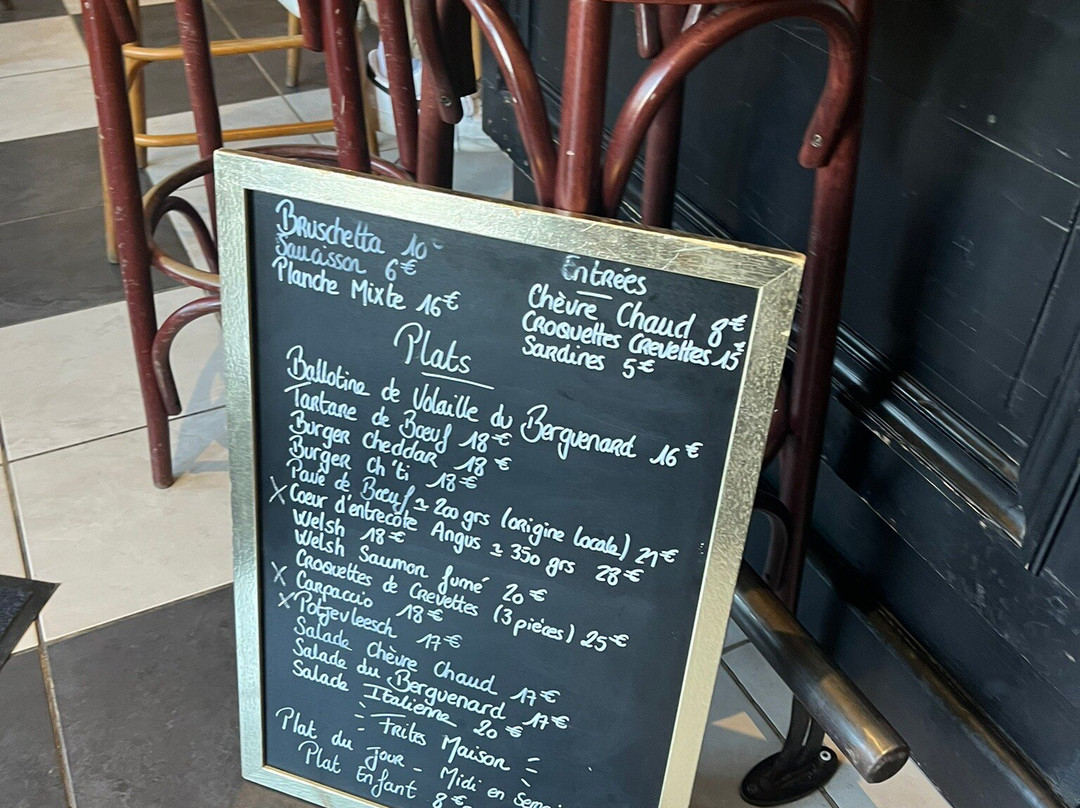 Bruschetta 10
Saucisson 6€
Planche Mixte 16€
Entrées
Chèvre Chaud 8€
Croquettes Crevettes 15€
Sardines 5€
Plats
Ballotine de Volaille du Berguenard 16€
Tartare de Bœuf 18€
Burger Cheddar 18€
Burger Ch'ti 18€
Pavé de Bœuf ≃ 200 grs (origine locale) 21€
X Coeur d'entrecôte Angus ≃ 350 grs 28€
Welsh 18€
Welsh Saumon fumé 20€
Croquettes de Crevettes (3 pièces) 25€
X Carpaccio 18€
X Potjevleesch 17€
Salade Chèvre Chaud 17€
Salade du Berguenard 17€
Salade Italienne 20€
Frites Maison
Plat du Jour - Midi en
Plat Enfant 8€